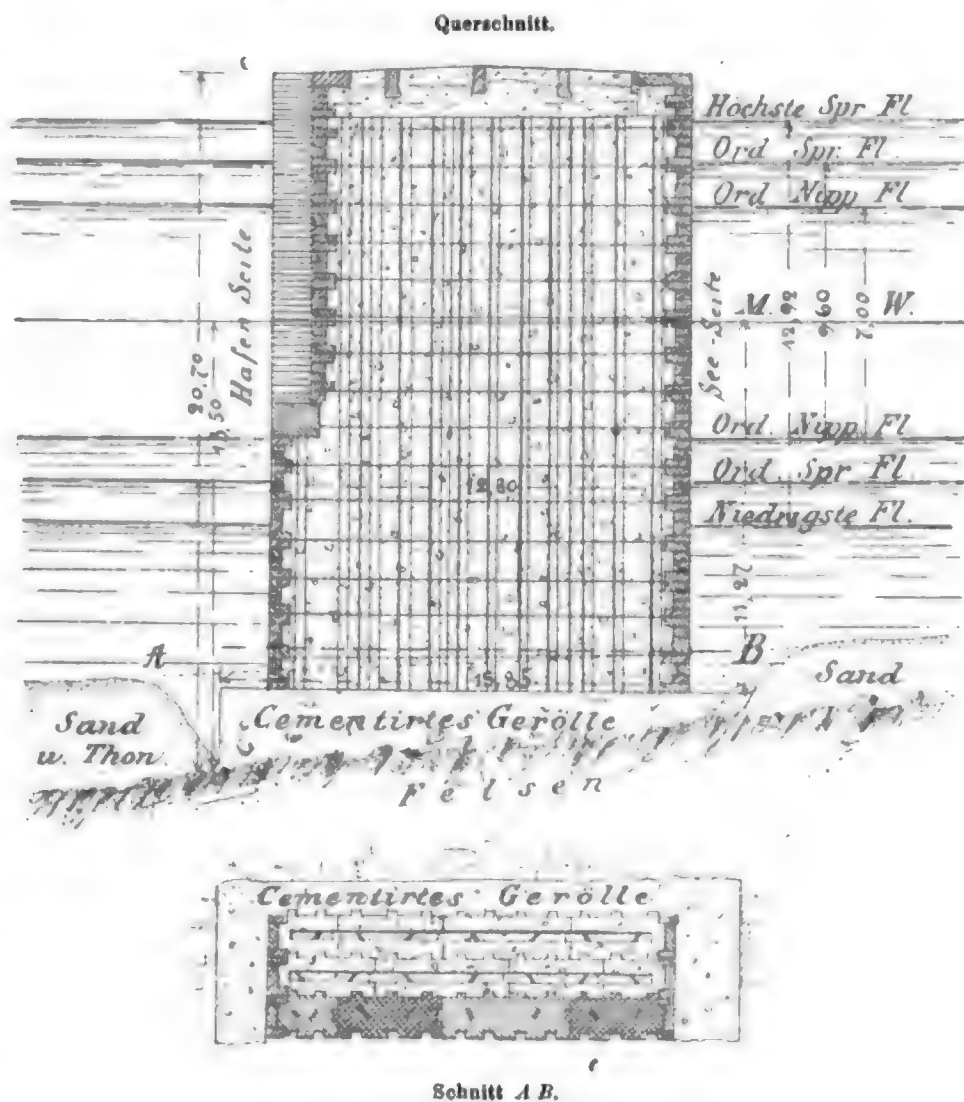 Querschnitt.
Höchste Spr Fl
Ord Spr Fl.
Ord Nipp Fl
Hafen Seite
See-Seite
M. W.
12,92
9,60
7,00
20,70
Ord. Nipp Fl
Ord. Spr Fl
12,80
Niedrigste Fl.
11,27
A
B
15,85
Sand
Sand
u. Thon.
Cementirtes Gerölle
Felsen
Cementirtes Gerölle
Schnitt A B.